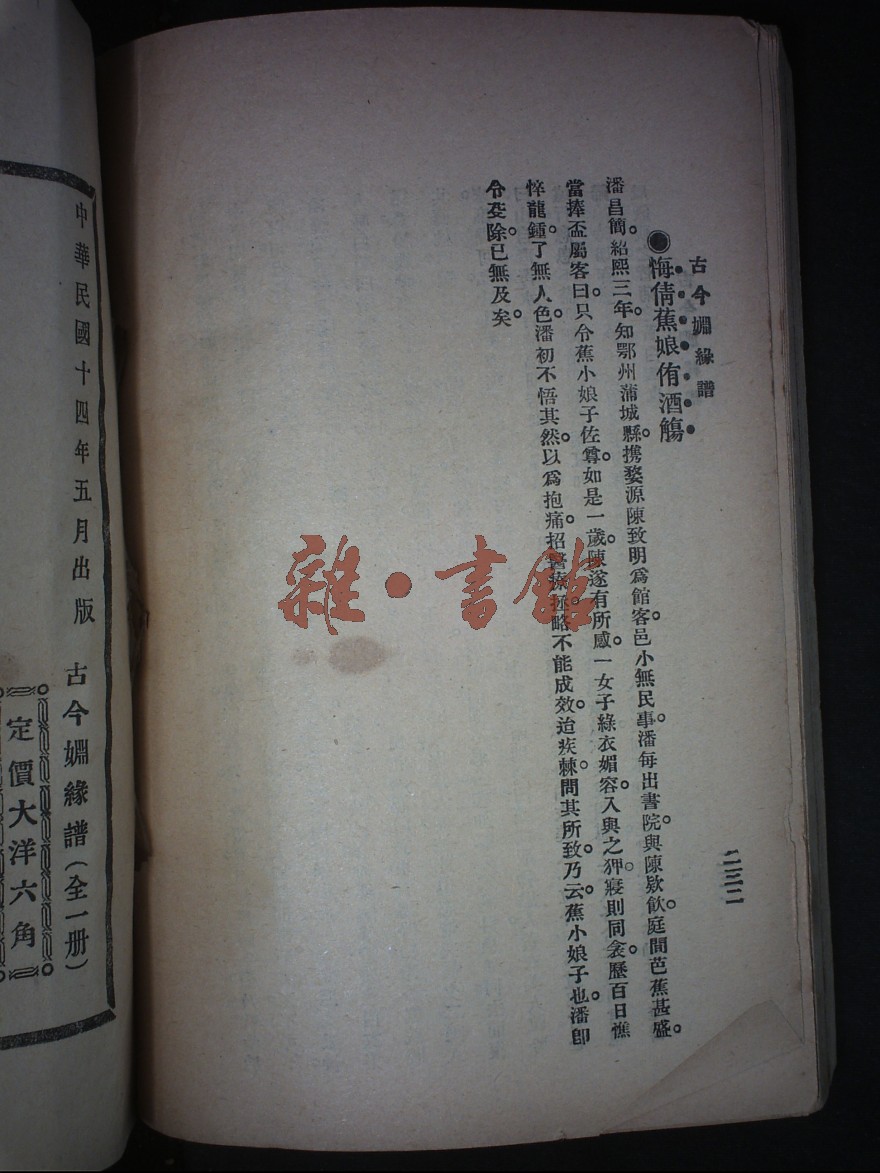 古今婣緣譜
●悔倩蕉娘侑酒觴
潘昌簡。紹熙三年。知鄂州蒲城縣。携婺源陳致明爲館客。邑小無民事。潘每出書院。與陳欵飲。庭間芭蕉甚盛。
當捧盃屬客曰。只令蕉小娘子佐尊。如是一歲。陳遂有所感。一女子綠衣媚容。入與之狎。寢則同衾。歷百日憔
悴龍鍾。了無人色。潘初不悟其然。以爲抱痛。招醫療拯。略不能成效。迨疾棘。問其所致。乃云。蕉小娘子也。潘卽
令芟除。已無及矣。
二三二
中華民國十四年五月出版
古今婣緣譜(全一册)
定價大洋六角
雜·書館